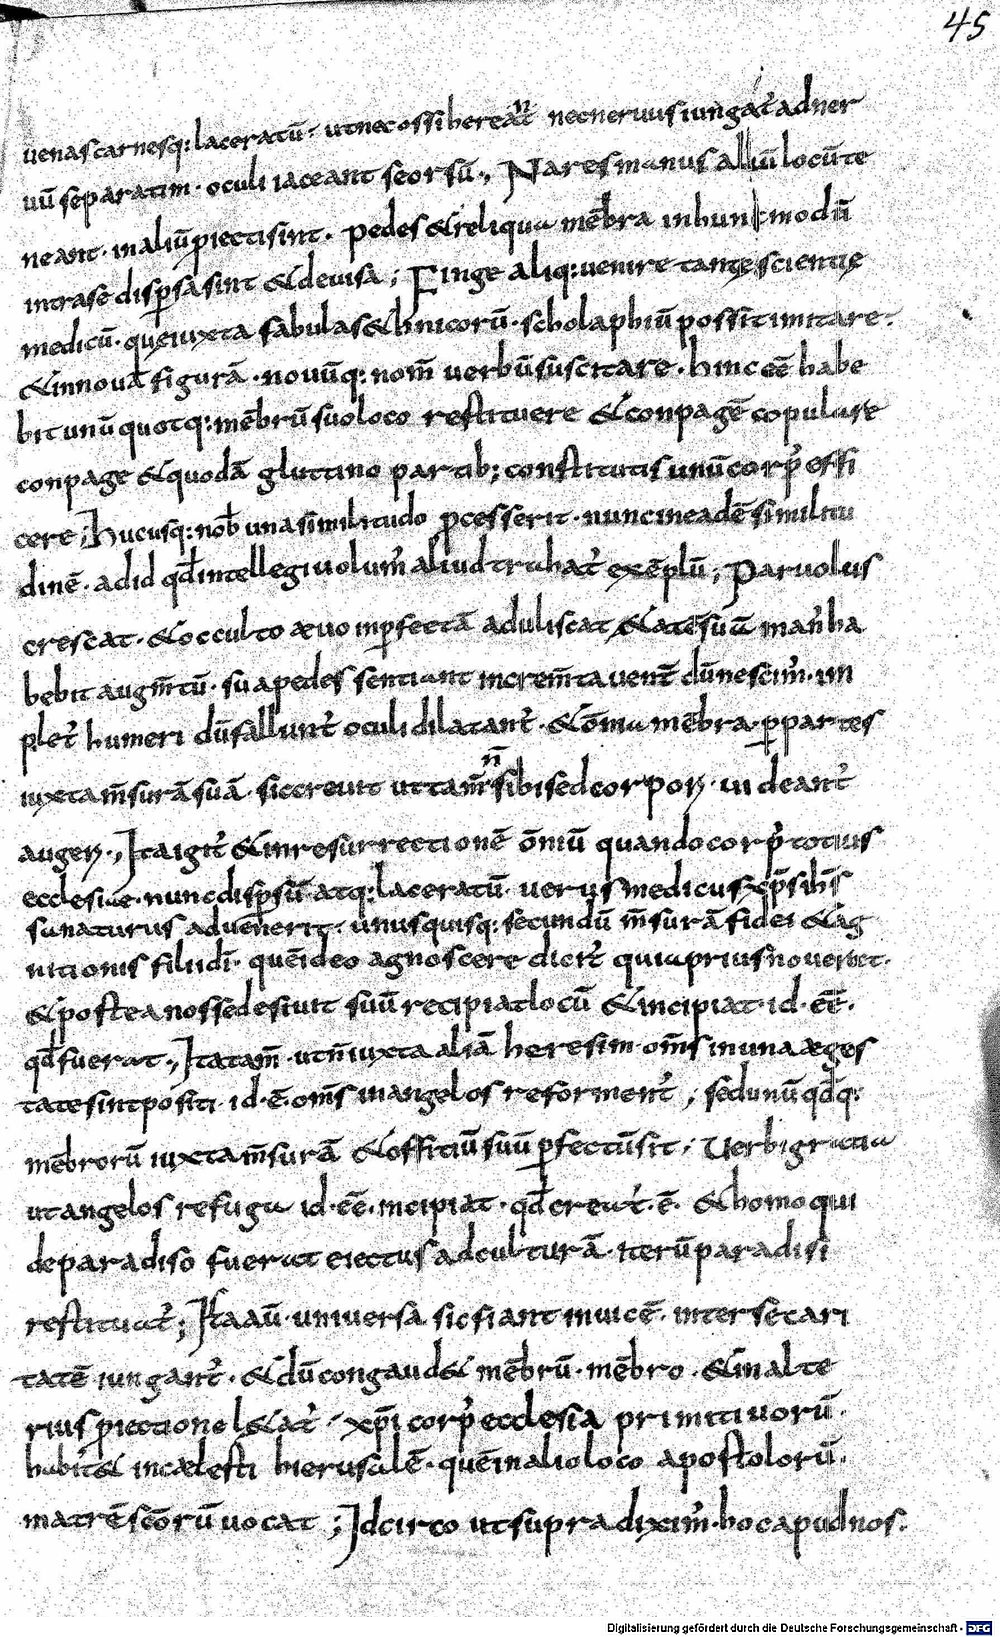 45
uenascarnesq: laceratū· utnec ossib hereat̄ n̄ necneruus iungat̓ adner
uū separatim · oculi iaceant seorsū ., Nares manus aliū locū te
neant · inaliū p̱iecti sint · pedes &reliqua mēbra inhunc modū
intrase disp̱sa sint &deuisa ; Finge aliq: uenire tantę scientię
medicū · quęiuxta fabulas &hnicorū · scholaphiū possit imitare·
&innouā figurā · nouūq: nom̄ uerbū suscitare · hinc eē habe
bit unū quotq: mēbrū suo loco restituere &conpagē copulare
conpage &quodā gluttino partib; constitutis unū corp̓ effi
cere ; Hucusq: nob̄ una similitudo p̱cesserit · nunc ineadē similitu
dinē · adid qd̄ intellegi uolum̓ aliud trahat̓ exēplū ; Paruolus
crescat · &occulto æuo inp̱fectā aduliscat &atē suā man̓ ha
bebit augm̄tū · sua pedes sentiant increm̄ta uent̄ dū nescim̓ · im
plet̓ humeri dū fallunt̓ oculi dilatant̓ · &om̄a mēbra p̱ partes
iuxta m̄surā suā · sic creuit ut tam̄ n̄ sibi sed corpori · uideant̓
augeri ., Ita igit̓ &inresurrectionē om̄iū quando corp̓ totius
ecclesiae · nunc disp̱sū atq: laceratū · uerus medicus xp̄s ih̄s
sanaturus aduenerit · unusquisq: secundū m̄surā fidei &ag
nitionis filii dī · quē ideo agnoscere dicit̓ quia prius nouerat ·
&postea nosse destitit suū recipiat locū &incipiat · id · eē ·
qd̄ fuerat ., Ita tam̄ · ut n̄ iuxta aliā heresim · om̄s inuna æges
tate sint positi · id · ē · om̄s inangelos reforment̓ ; sed unū qd̄q:
mēbrorū iuxta m̄surā &offitiū suū p̱fectū sit ; Uerbi gratia
ut angelos refuga id · eē · incipiat · qd̄ creat̓ · ē · &homo qui
de paradiso fuerat eiectus ad culturā · iterū paradisi
restituat̓ ; Ita aū · uniuersa sic fiant inuicē · inter se cari
tatē iungant̓ · &dū congaud& mēbrū · mēbro · &inalte
rius p̱iectione l&at̓ · xp̄i corp̓ ecclesia primitiuorū ·
habit& incælesti hierusalē · quē inalio loco apostolorū ·
matrē scōrū uocat ; Idcirco ut supra dixim̓ · hoc apud nos ·
Digitalisierung gefördert durch die Deutsche Forschungsgemeinschaft - DFG